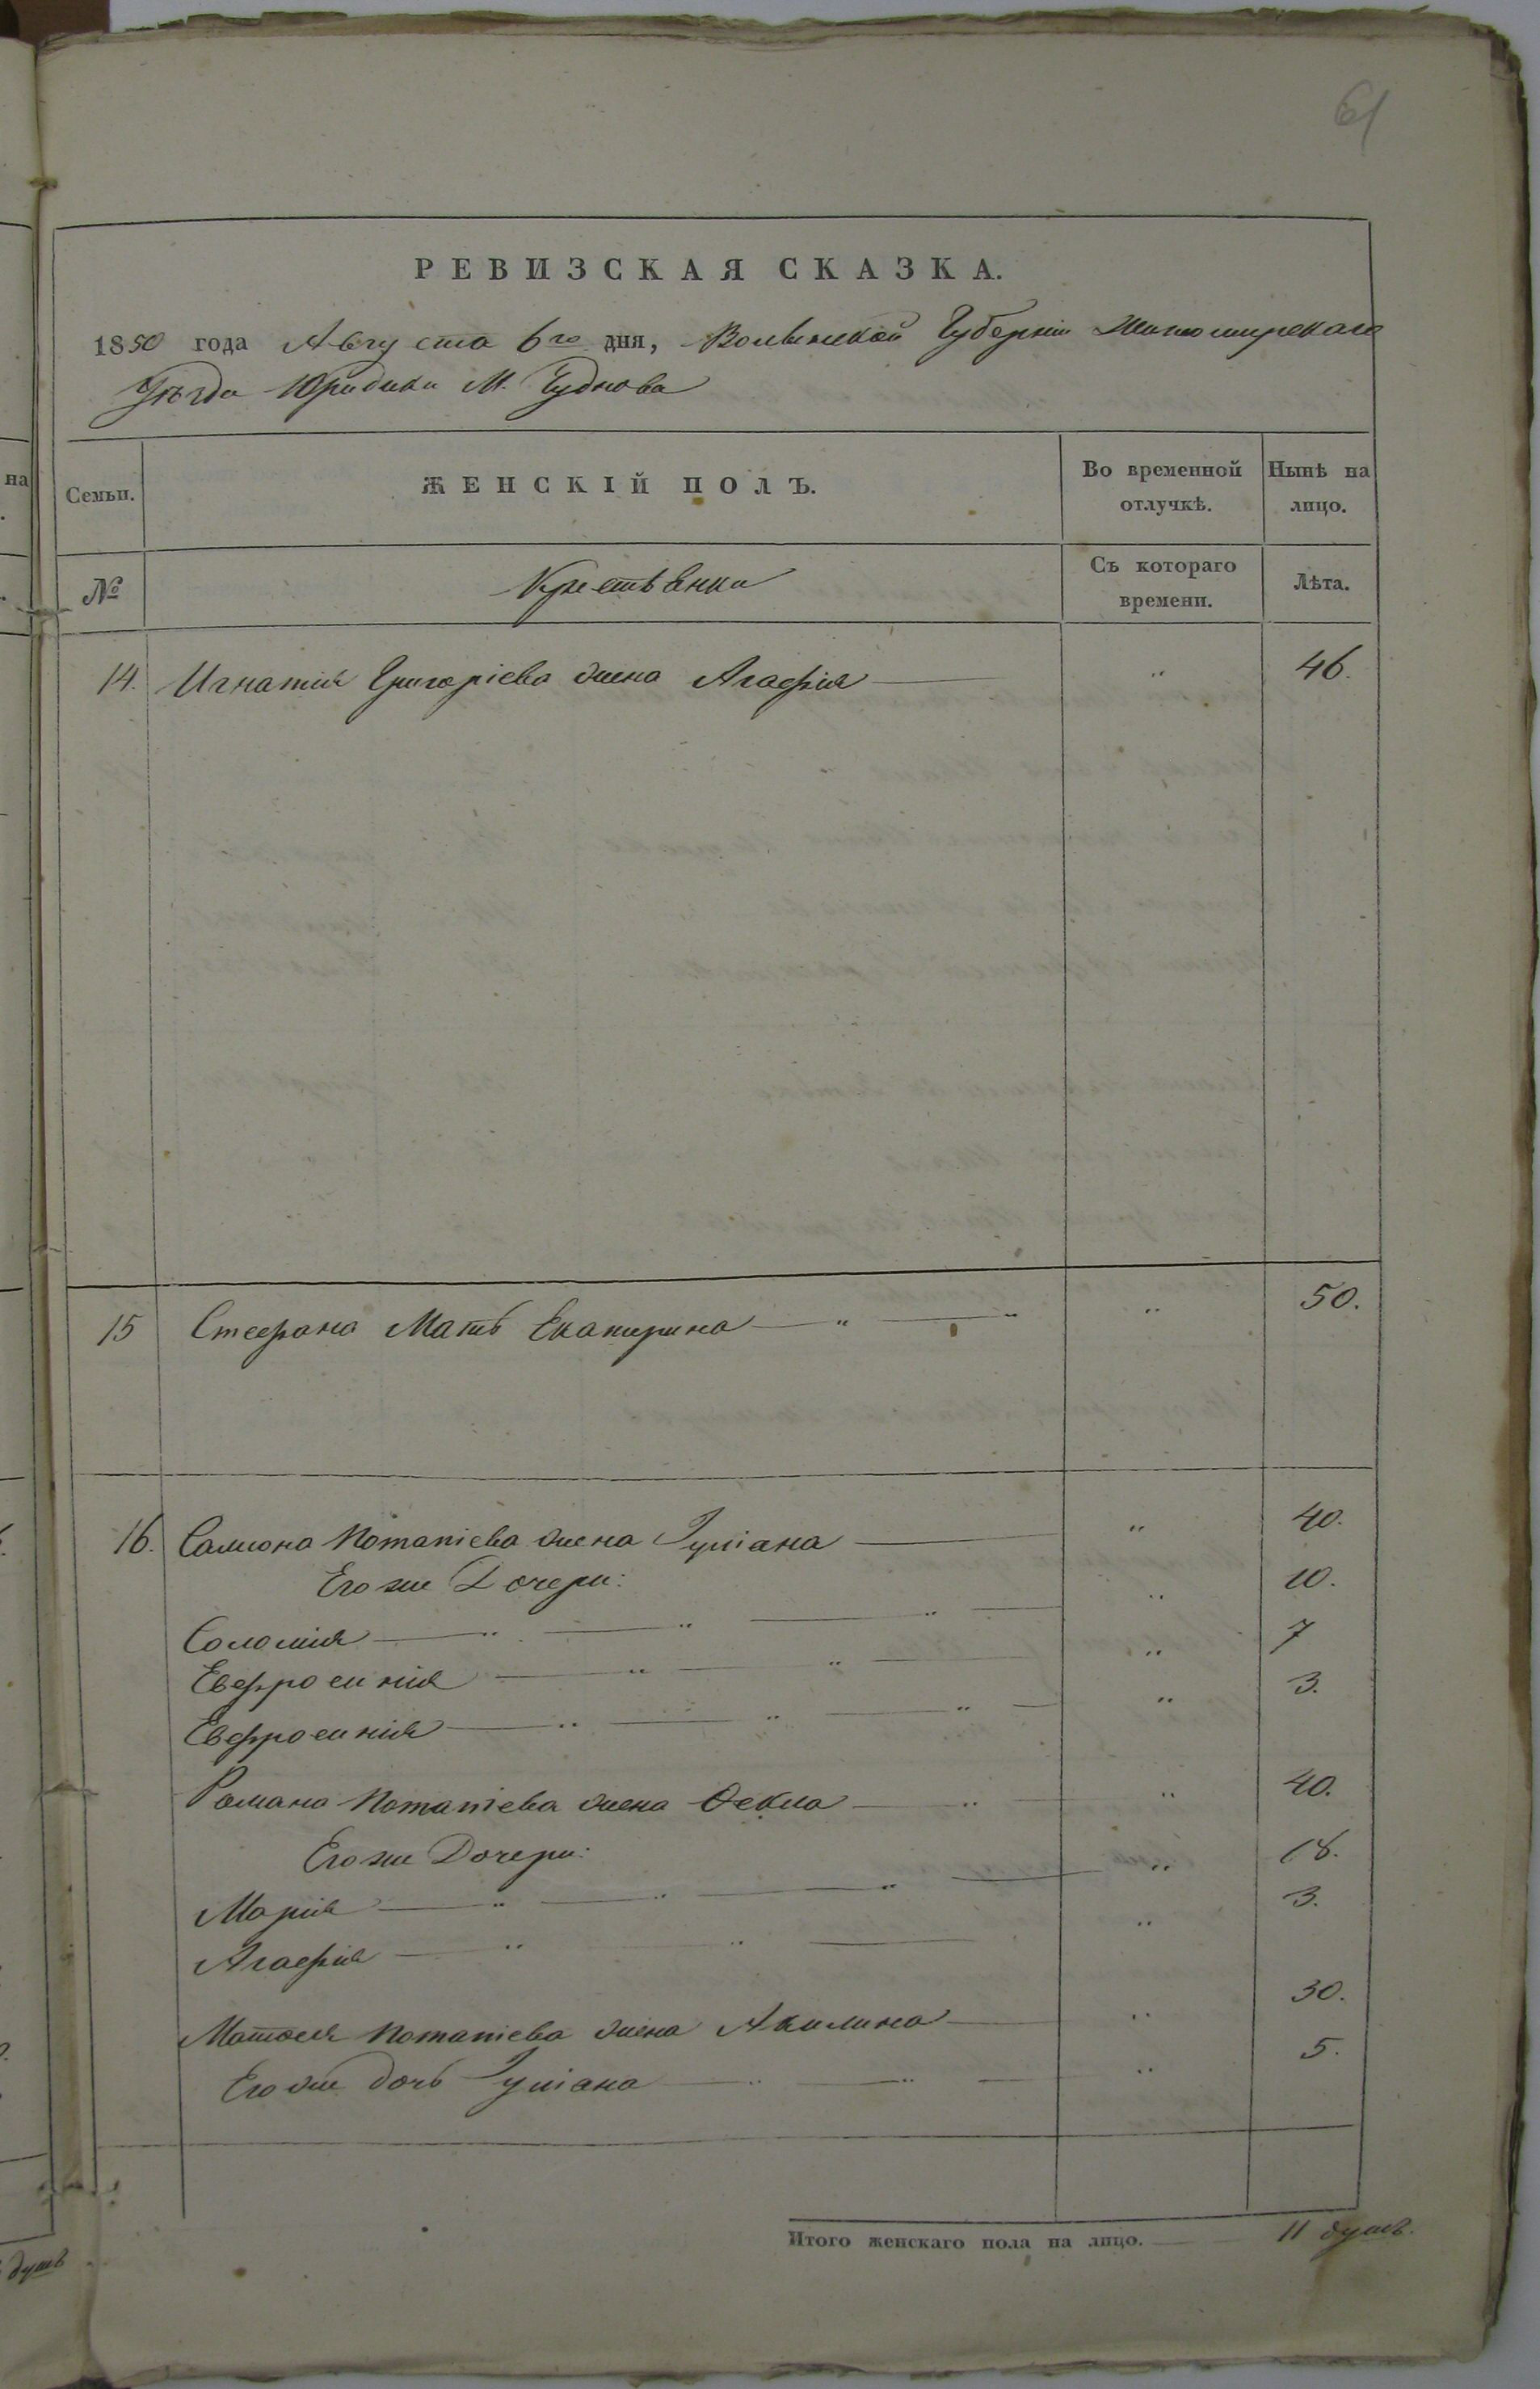 61
РЕВИЗСКАЯ СКАЗКА.
1850 года Августа 6го дня, Волынской Губерніи Житомирскаго
Уѣзда Юридики М. Чуднова
на
Семьи. ЖЕНСКІЙ ПОЛЪ. Во временной отлучкѣ. Нынѣ на лицо.
№ Крестьянки Съ котораго времени. Лѣта.
14. Игнатія Григоріева жена Агафія — „ 46.
15 Стефана Мать Екатерина — „ — „ „ 50.
16. Самсона Потапіева жена Іуліана — „ 40.
Его же Дочери:
Соломія — „ — „ — „ — „ 10.
Евфросинія — „ — „ — „ 7
Евфросинія — „ — „ — „ — „ 3.
Романа Потапіева жена Ѳекла — „ — „ 40.
Его же Дочери:
Марія — „ — „ — „ — „ 18.
Агафія — „ „ — „ 3.
Матвея Потапіева жена Акилина — „ 30.
Его же дочь Іуліана — „ — „ — „ 5.
Итого женскаго пола на лицо. — 11 душъ.
душъ